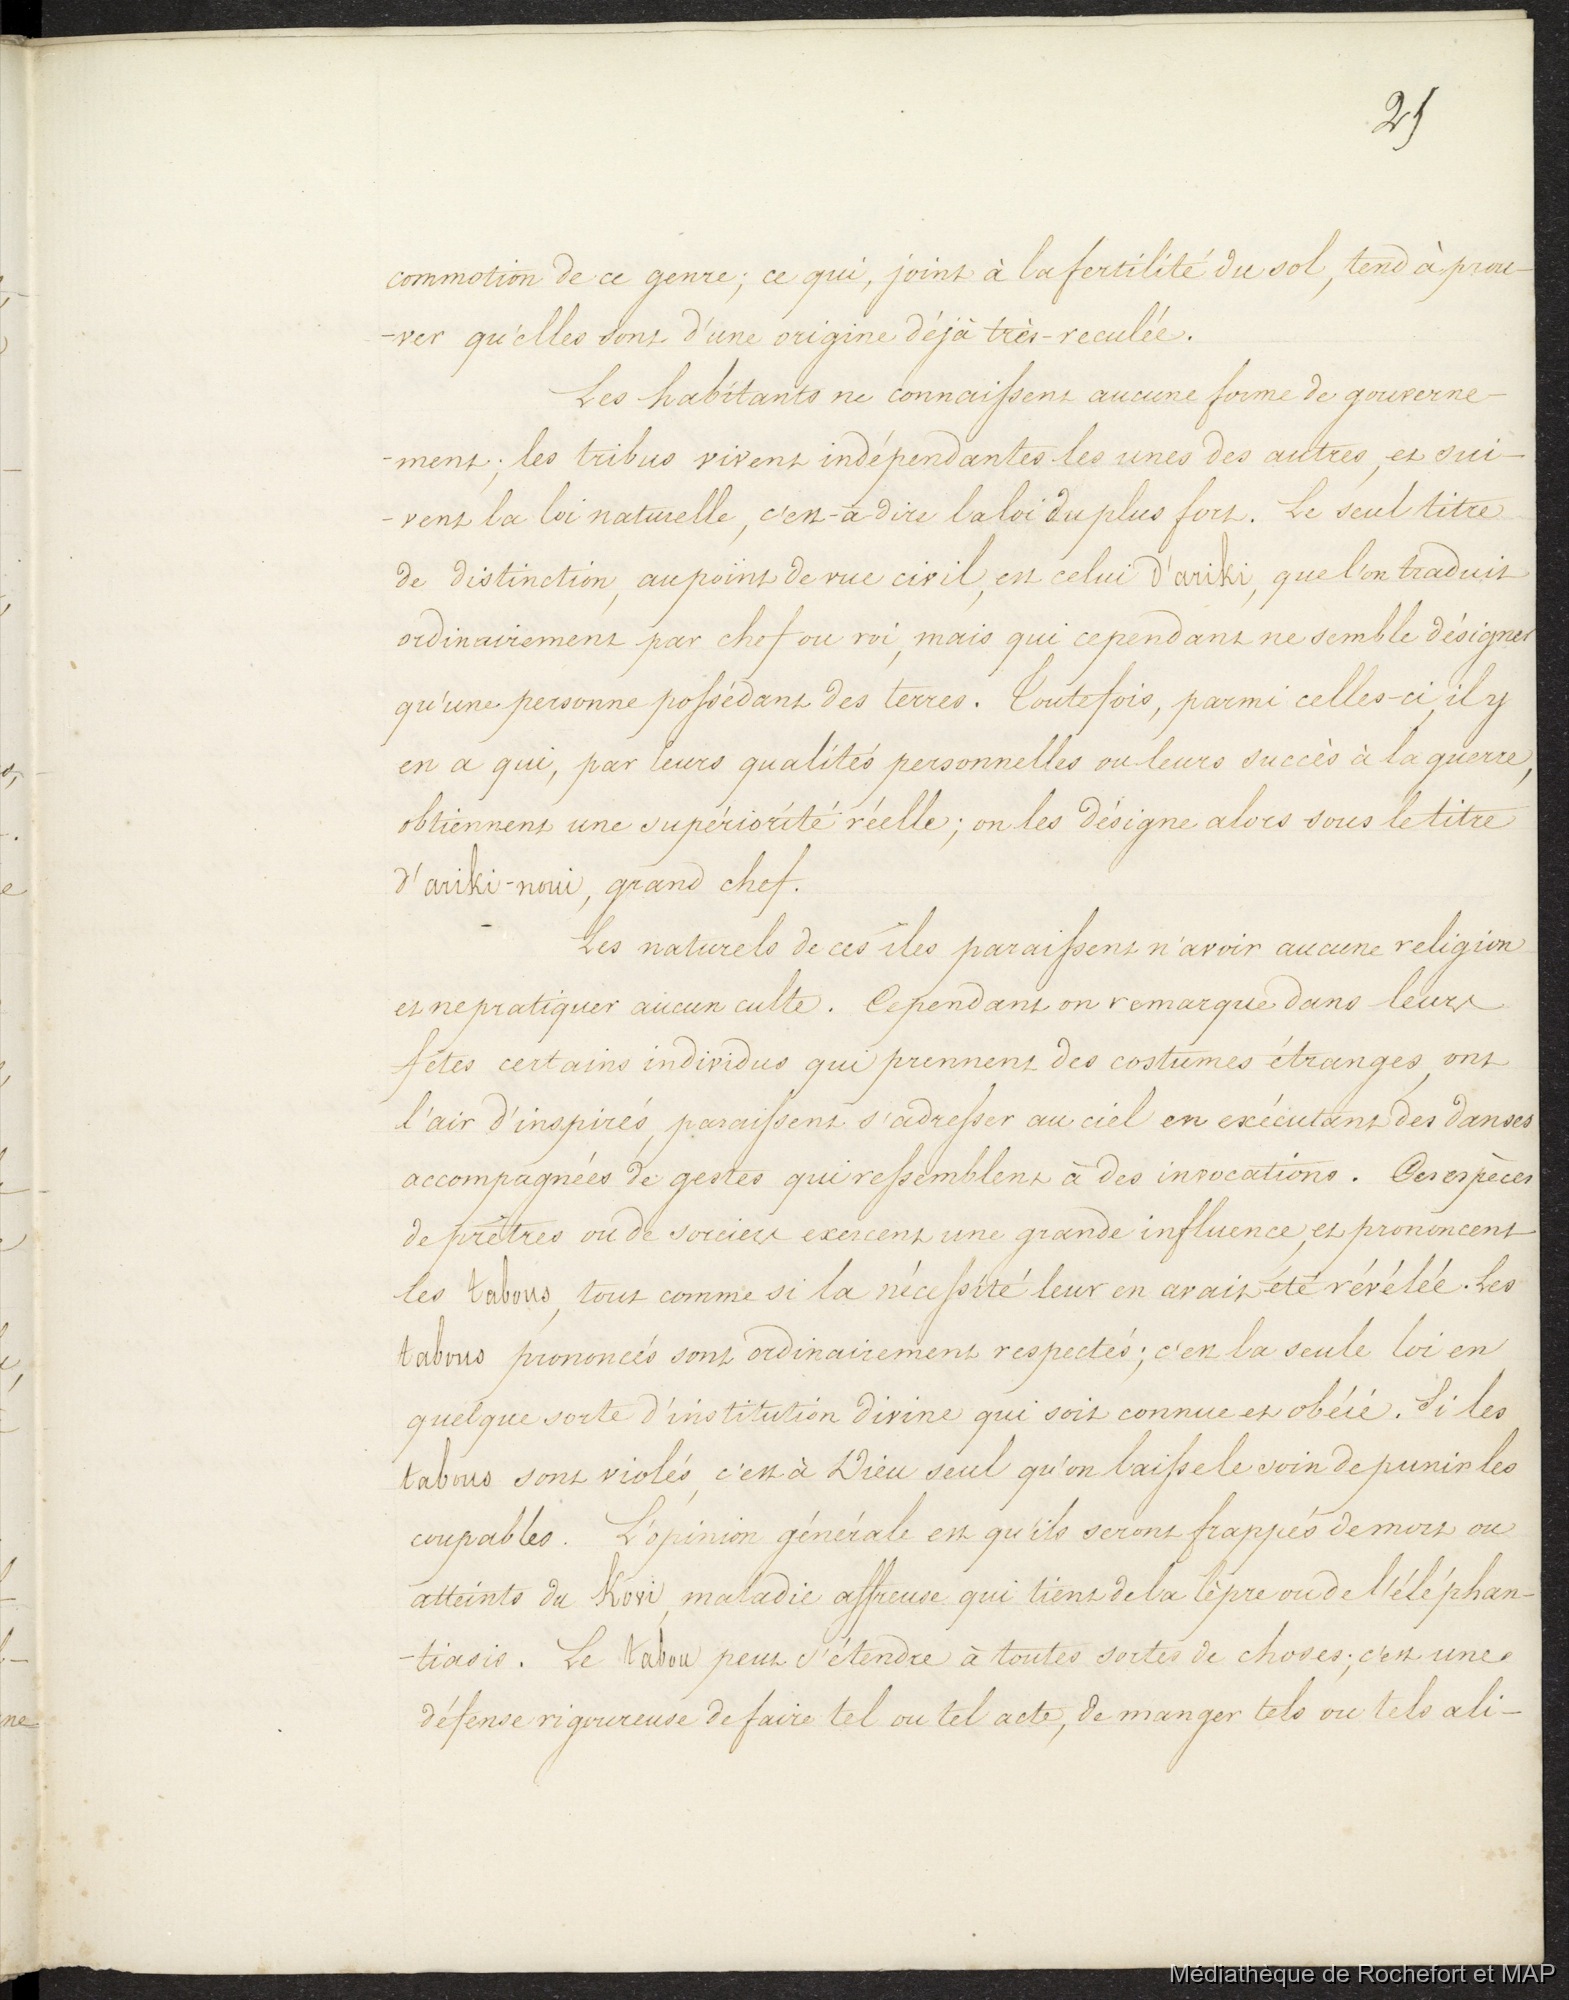 25
commotion de ce genre; ce qui, joint à la fertilité du sol, tend à prou-
-ver qu'elles sont d'une origine déjà très-reculée.
Les habitants ne connaissent aucune forme de gouverne-
-ment; les tribus vivent indépendantes les unes des autres, et sui-
-vent la loi naturelle, c'est-à-dire la loi du plus fort. Le seul titre
de distinction, au point de vue civil, est celui d'ariki, que l'on traduit
ordinairement par chef ou roi, mais qui cependant ne semble désigner
qu'une personne possédant des terres. Toutefois, parmi celles-ci, il y
en a qui, par leurs qualités personnelles ou leurs succès à la guerre,
obtiennent une supériorité réelle; on les désigne alors sous le titre
d'ariki-noui, grand chef.
Les naturels de ces îles paraissent n'avoir aucune religion
et ne pratiquer aucun culte. Cependant on remarque dans leurs
fêtes certains individus qui prennent des costumes étranges, ont
l'air d'inspirés, paraissent s'adresser au ciel en exécutant des danses
accompagnées de gestes qui ressemblent à des invocations. Ces espèces
de prêtres ou de sorciers exercent une grande influence, et prononcent
les tabous, tout comme si la nécessité leur en avait été révélée. Les
tabous prononcés sont ordinairement respectés; c'est la seule loi en
quelque sorte d'institution divine qui soit connue et obéie. Si les
tabous sont violés, c'est à Dieu seul qu'on laisse le soin de punir les
coupables. L'opinion générale est qu'ils seront frappés de mort ou
atteints du Kovi, maladie affreuse qui tient de la lèpre ou de l'éléphan-
-tiasis. Le tabou peut s'étendre à toutes sortes de choses; c'est une
défense rigoureuse de faire tel ou tel acte, de manger tels ou tels ali-
Médiathèque de Rochefort et MAP